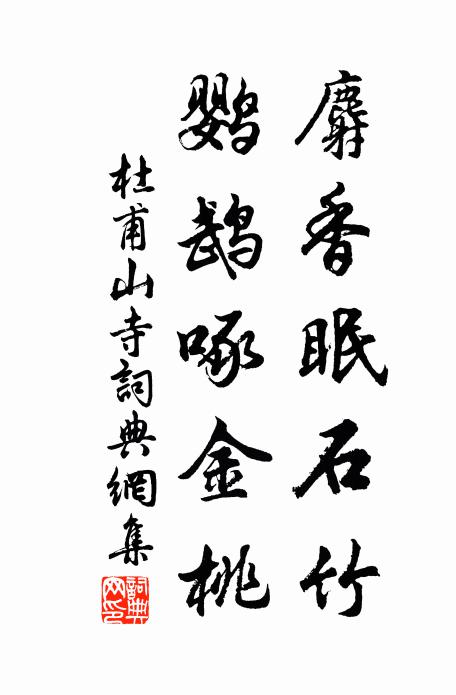 麝香眠石竹
鹦鹉啄金桃
杜甫山寺詞典網集
詞典